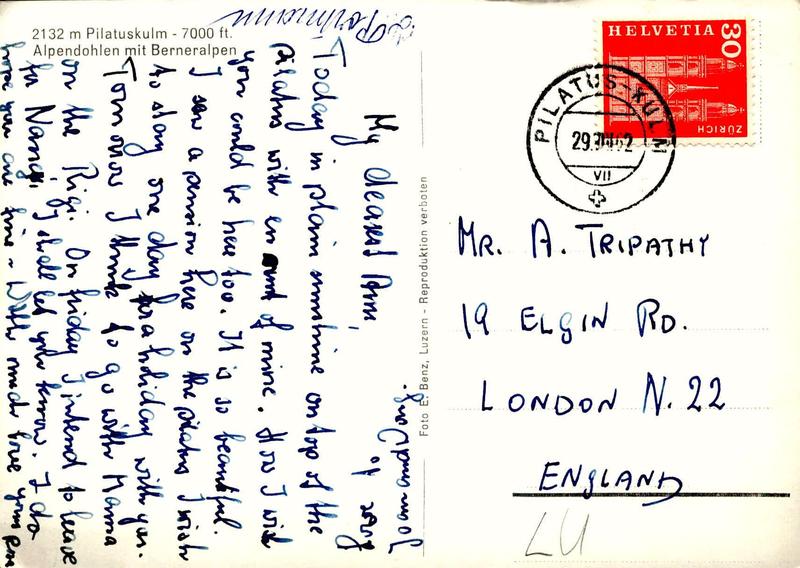 2132 m Pilatuskulm - 7000 ft.
Alpendohlen mit Berneralpen
My dearest
Today in plain sunshine on top of the
pilatus with an aunt of mine. How I wish
you could be here too. It is so beautiful.
I saw a pension here on the pilatus I wish
to stay one day for a holiday with you.
Tomorrow I think to go with Mamma
on the Rigi. On friday I intend to leave
for Nancy, I shall let you know. I do
hope you are fine - With much love your
Foto E. Benz, Luzern - Reproduktion verboten
HELVETIA
30
ZÜRICH
PILATUS-KULM
29.
62
VII
MR. A. TRIPATHY
19 ELGIN RD.
LONDON N. 22
ENGLAND
LU